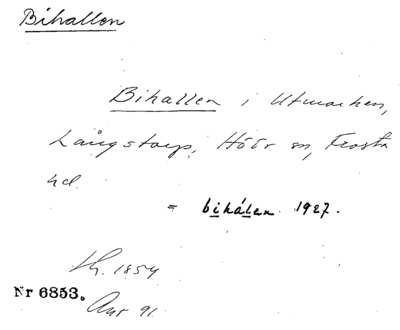 Bihallen
Bihallen i Utmarken,
Långstorp, Höör sn, Frosta
hd.
= bihálen 1927.
Lh. 1854
Nr 6853.
Avr 91.